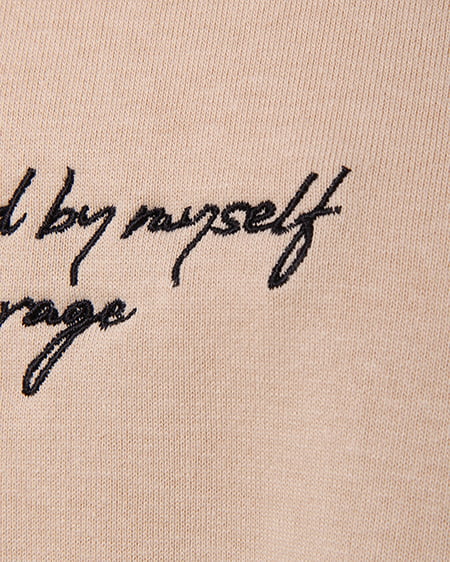 d by myself
rage